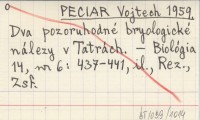 PECIAR Vojtech 1959,
Dva pozoruhodné bryologické
nálezy v Tatrách. – Biológia
14, nr 6: 437-441, il., Rez.,
Zsf.